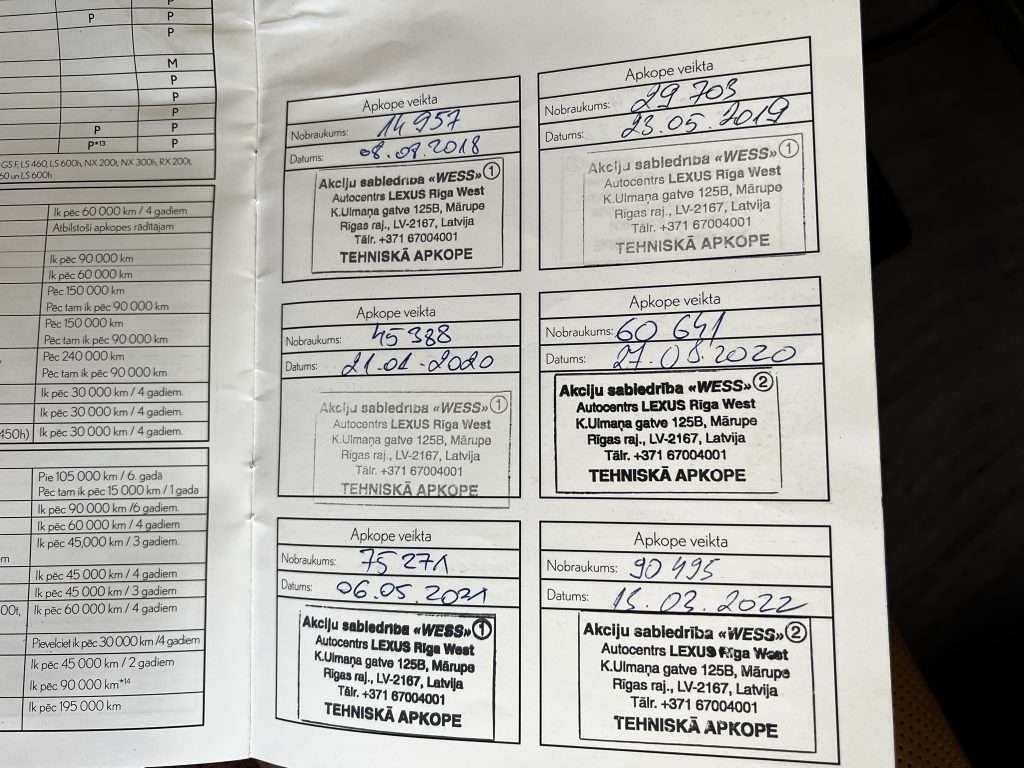 P
P
P
M
P
P
P
P P
P*13 P
GS F, LS 460, LS 600h, NX 200t, NX 300h, RX 200t,
60 un LS 600h
Ik pēc 60 000 km / 4 gadiem
Atbilstoši apkopes rādītājam
Ik pēc 90 000 km
Ik pēc 60 000 km
Pēc 150 000 km
Pēc tam ik pēc 90 000 km
Pēc 150 000 km
Pēc tam ik pēc 90 000 km
Pēc 240 000 km
Pēc tam ik pēc 90 000 km
Ik pēc 30 000 km / 4 gadiem.
Ik pēc 30 000 km / 4 gadiem.
450h) Ik pēc 30 000 km / 4 gadiem.
Pie 105 000 km / 6. gadā
Pēc tam ik pēc 15 000 km / 1 gada
Ik pēc 90 000 km /6 gadiem.
Ik pēc 60 000 km / 4 gadiem
Ik pēc 45,000 km / 3 gadiem.
m
Ik pēc 45 000 km / 4 gadiem
Ik pēc 45 000 km / 3 gadiem
00t, Ik pēc 60 000 km / 4 gadiem
Pievelciet ik pēc 30 000 km /4 gadiem
Ik pēc 45 000 km / 2 gadiem
Ik pēc 90 000 km*14
Ik pēc 195 000 km
Apkope veikta
Nobraukums: 14 957
Datums: 08.08.2018
Akciju sabiedrība «WESS» 1
Autocentrs LEXUS Rīga West
K.Ulmaņa gatve 125B, Mārupe
Rīgas raj., LV-2167, Latvija
Tālr. +371 67004001
TEHNISKĀ APKOPE
Apkope veikta
Nobraukums: 29 703
Datums: 23.05.2019
Akciju sabiedrība «WESS» 1
Autocentrs LEXUS Rīga West
K.Ulmaņa gatve 125B, Mārupe
Rīgas raj., LV-2167, Latvija
Tālr. +371 67004001
TEHNISKĀ APKOPE
Apkope veikta
Nobraukums: 45 388
Datums: 21.01.2020
Akciju sabiedrība «WESS» 1
Autocentrs LEXUS Rīga West
K.Ulmaņa gatve 125B, Mārupe
Rīgas raj., LV-2167, Latvija
Tālr. +371 67004001
TEHNISKĀ APKOPE
Apkope veikta
Nobraukums: 60 641
Datums: 27.08.2020
Akciju sabiedrība «WESS» 2
Autocentrs LEXUS Rīga West
K.Ulmaņa gatve 125B, Mārupe
Rīgas raj., LV-2167, Latvija
Tālr. +371 67004001
TEHNISKĀ APKOPE
Apkope veikta
Nobraukums: 75 271
Datums: 06.05.2021
Akciju sabiedrība «WESS» 1
Autocentrs LEXUS Rīga West
K.Ulmaņa gatve 125B, Mārupe
Rīgas raj., LV-2167, Latvija
Tālr. +371 67004001
TEHNISKĀ APKOPE
Apkope veikta
Nobraukums: 90 495
Datums: 15.03.2022
Akciju sabiedrība «WESS» 2
Autocentrs LEXUS Rīga West
K.Ulmaņa gatve 125B, Mārupe
Rīgas raj., LV-2167, Latvija
Tālr. +371 67004001
TEHNISKĀ APKOPE